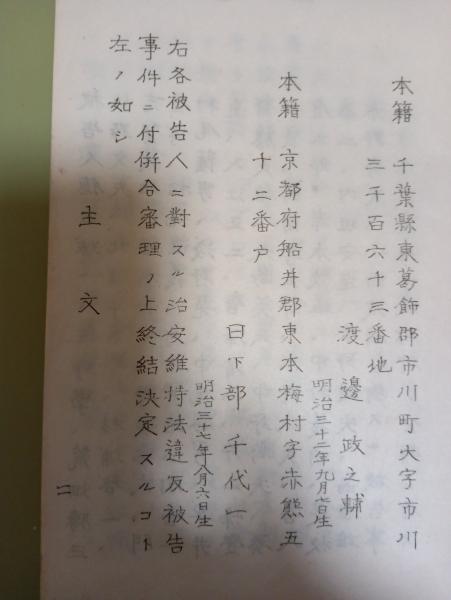 本籍 千葉縣東葛飾郡市川町大字市川
三千百六十三番地
渡邊政之輔
明治三十二年九月七日生
本籍 京都府船井郡東本梅村字赤熊五
十二番戸
日下部千代一
明治三十七年八月六日生
右各被告人ニ對スル治安維持法違反被告
事件ニ付併合審理ノ上終結決定スルコト
左ノ如シ
主文
二